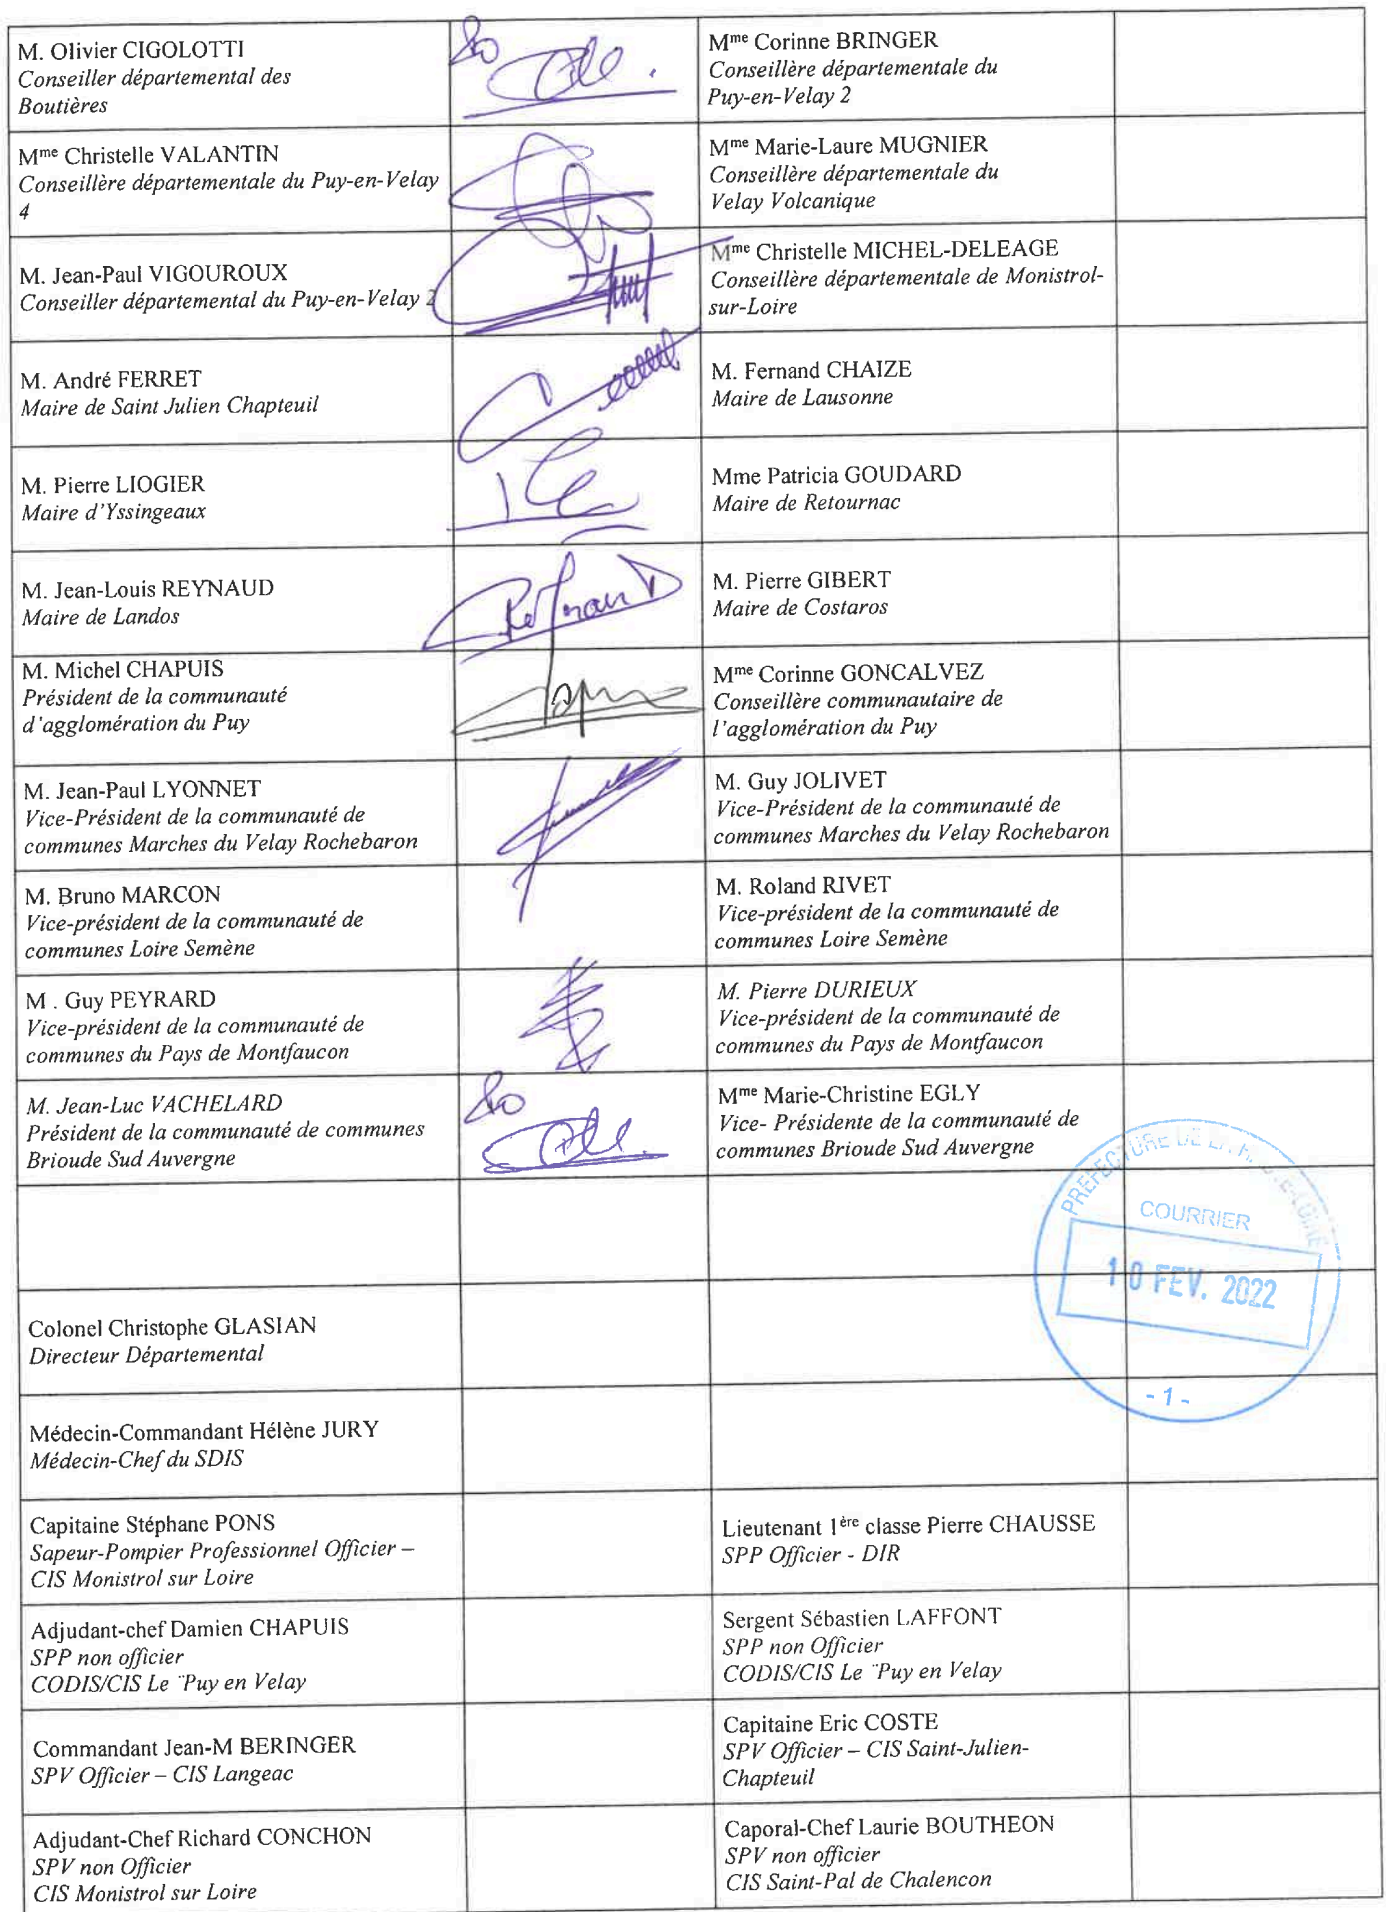 M. Olivier CIGOLOTTI
Conseiller départemental des
Boutières
Mme Corinne BRINGER
Conseillère départementale du
Puy-en-Velay 2
Mme Christelle VALANTIN
Conseillère départementale du Puy-en-Velay
4
Mme Marie-Laure MUGNIER
Conseillère départementale du
Velay Volcanique
M. Jean-Paul VIGOUROUX
Conseiller départemental du Puy-en-Velay 2
Mme Christelle MICHEL-DELEAGE
Conseillère départementale de Monistrol-
sur-Loire
M. André FERRET
Maire de Saint Julien Chapteuil
M. Fernand CHAIZE
Maire de Lausonne
M. Pierre LIOGIER
Maire d'Yssingeaux
Mme Patricia GOUDARD
Maire de Retournac
M. Jean-Louis REYNAUD
Maire de Landos
Reynaud
M. Pierre GIBERT
Maire de Costaros
M. Michel CHAPUIS
Président de la communauté
d'agglomération du Puy
Mme Corinne GONCALVEZ
Conseillère communautaire de
l'agglomération du Puy
M. Jean-Paul LYONNET
Vice-Président de la communauté de
communes Marches du Velay Rochebaron
M. Guy JOLIVET
Vice-Président de la communauté de
communes Marches du Velay Rochebaron
M. Bruno MARCON
Vice-président de la communauté de
communes Loire Semène
M. Roland RIVET
Vice-président de la communauté de
communes Loire Semène
M . Guy PEYRARD
Vice-président de la communauté de
communes du Pays de Montfaucon
M. Pierre DURIEUX
Vice-président de la communauté de
communes du Pays de Montfaucon
M. Jean-Luc VACHELARD
Président de la communauté de communes
Brioude Sud Auvergne
Mme Marie-Christine EGLY
Vice- Présidente de la communauté de
communes Brioude Sud Auvergne
PREFECTURE DE LA HAUTE-LOIRE
COURRIER
10 FEV. 2022
- 1 -
Colonel Christophe GLASIAN
Directeur Départemental
Médecin-Commandant Hélène JURY
Médecin-Chef du SDIS
Capitaine Stéphane PONS
Sapeur-Pompier Professionnel Officier –
CIS Monistrol sur Loire
Lieutenant 1ère classe Pierre CHAUSSE
SPP Officier - DIR
Adjudant-chef Damien CHAPUIS
SPP non officier
CODIS/CIS Le ¨Puy en Velay
Sergent Sébastien LAFFONT
SPP non Officier
CODIS/CIS Le ¨Puy en Velay
Commandant Jean-M BERINGER
SPV Officier – CIS Langeac
Capitaine Eric COSTE
SPV Officier – CIS Saint-Julien-
Chapteuil
Adjudant-Chef Richard CONCHON
SPV non Officier
CIS Monistrol sur Loire
Caporal-Chef Laurie BOUTHEON
SPV non officier
CIS Saint-Pal de Chalencon